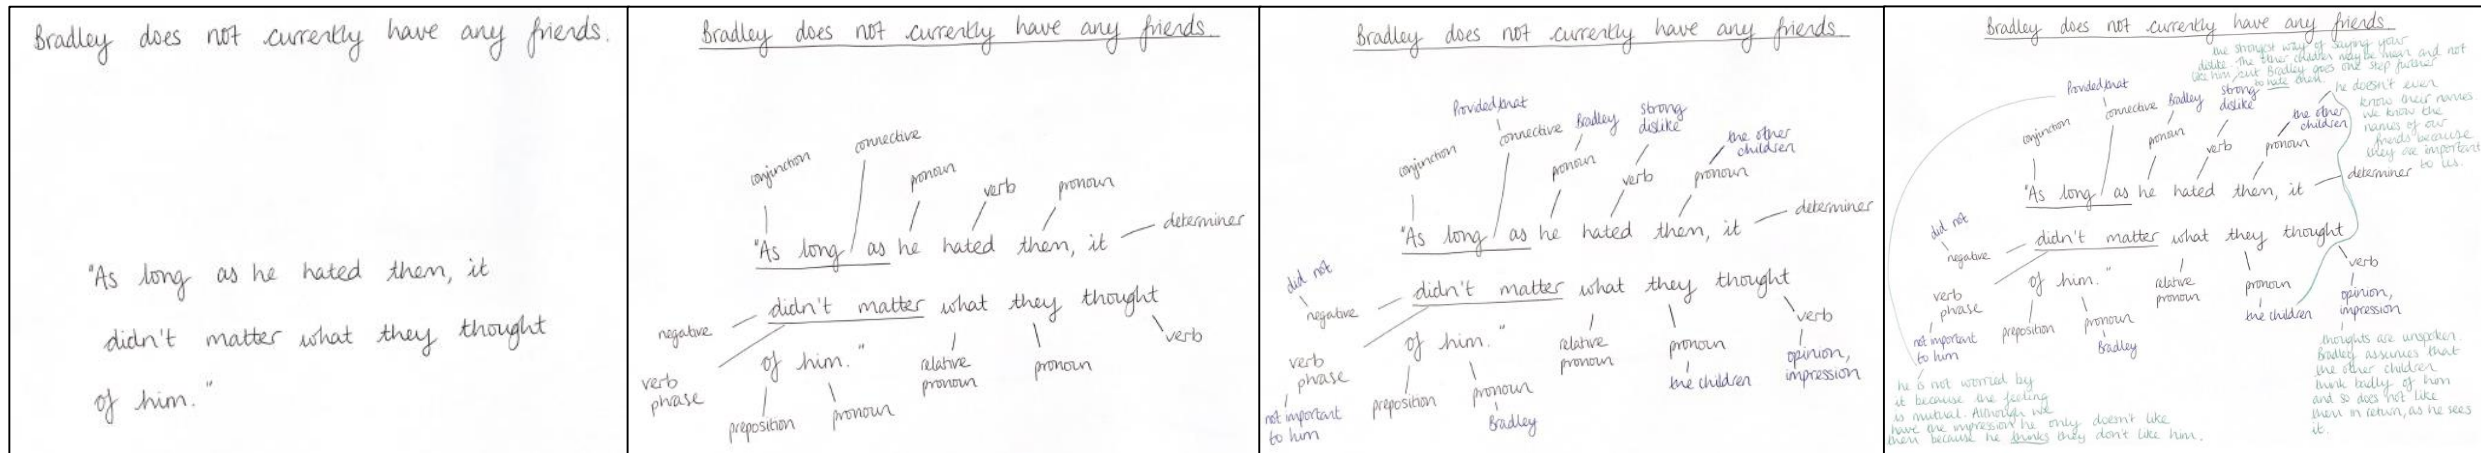 Bradley does not currently have any friends.
"As long as he hated them, it
didn't matter what they thought
of him."
Bradley does not currently have any friends.
conjunction
connective
pronoun
verb
pronoun
determiner
"As long as he hated them, it
didn't matter what they thought
of him."
negative
verb
phrase
preposition
pronoun
relative
pronoun
pronoun
verb
Bradley does not currently have any friends
Provided that
conjunction
connective
Bradley
pronoun
strong
dislike
verb
the other
children
pronoun
determiner
"As long as he hated them, it
didn't matter what they thought
of him."
did not
negative
verb
phrase
not important
to him
preposition
pronoun
Bradley
relative
pronoun
pronoun
the children
verb
opinion,
impression
Bradley does not currently have any friends
the strongest way of saying your
dislike. The other children may be mean and not
like him, but Bradley goes one step further
to hate them.
Provided that
conjunction
connective
Bradley
pronoun
strong
dislike
verb
the other
children
pronoun
he doesn't even
know their names
we know the
names of our
friends because
they are important
to us.
determiner
"As long as he hated them, it
didn't matter what they thought
of him."
did not
negative
verb
phrase
not important
to him
he is not worried by
it because the feeling
is mutual. Although we
have the impression he only doesn't like
them because he thinks they don't like him.
preposition
pronoun
Bradley
relative
pronoun
pronoun
the children
verb
opinion,
impression
thoughts are unspoken.
Bradley assumes that
the other children
think badly of him
and so does not like
them in return, as he sees
it.